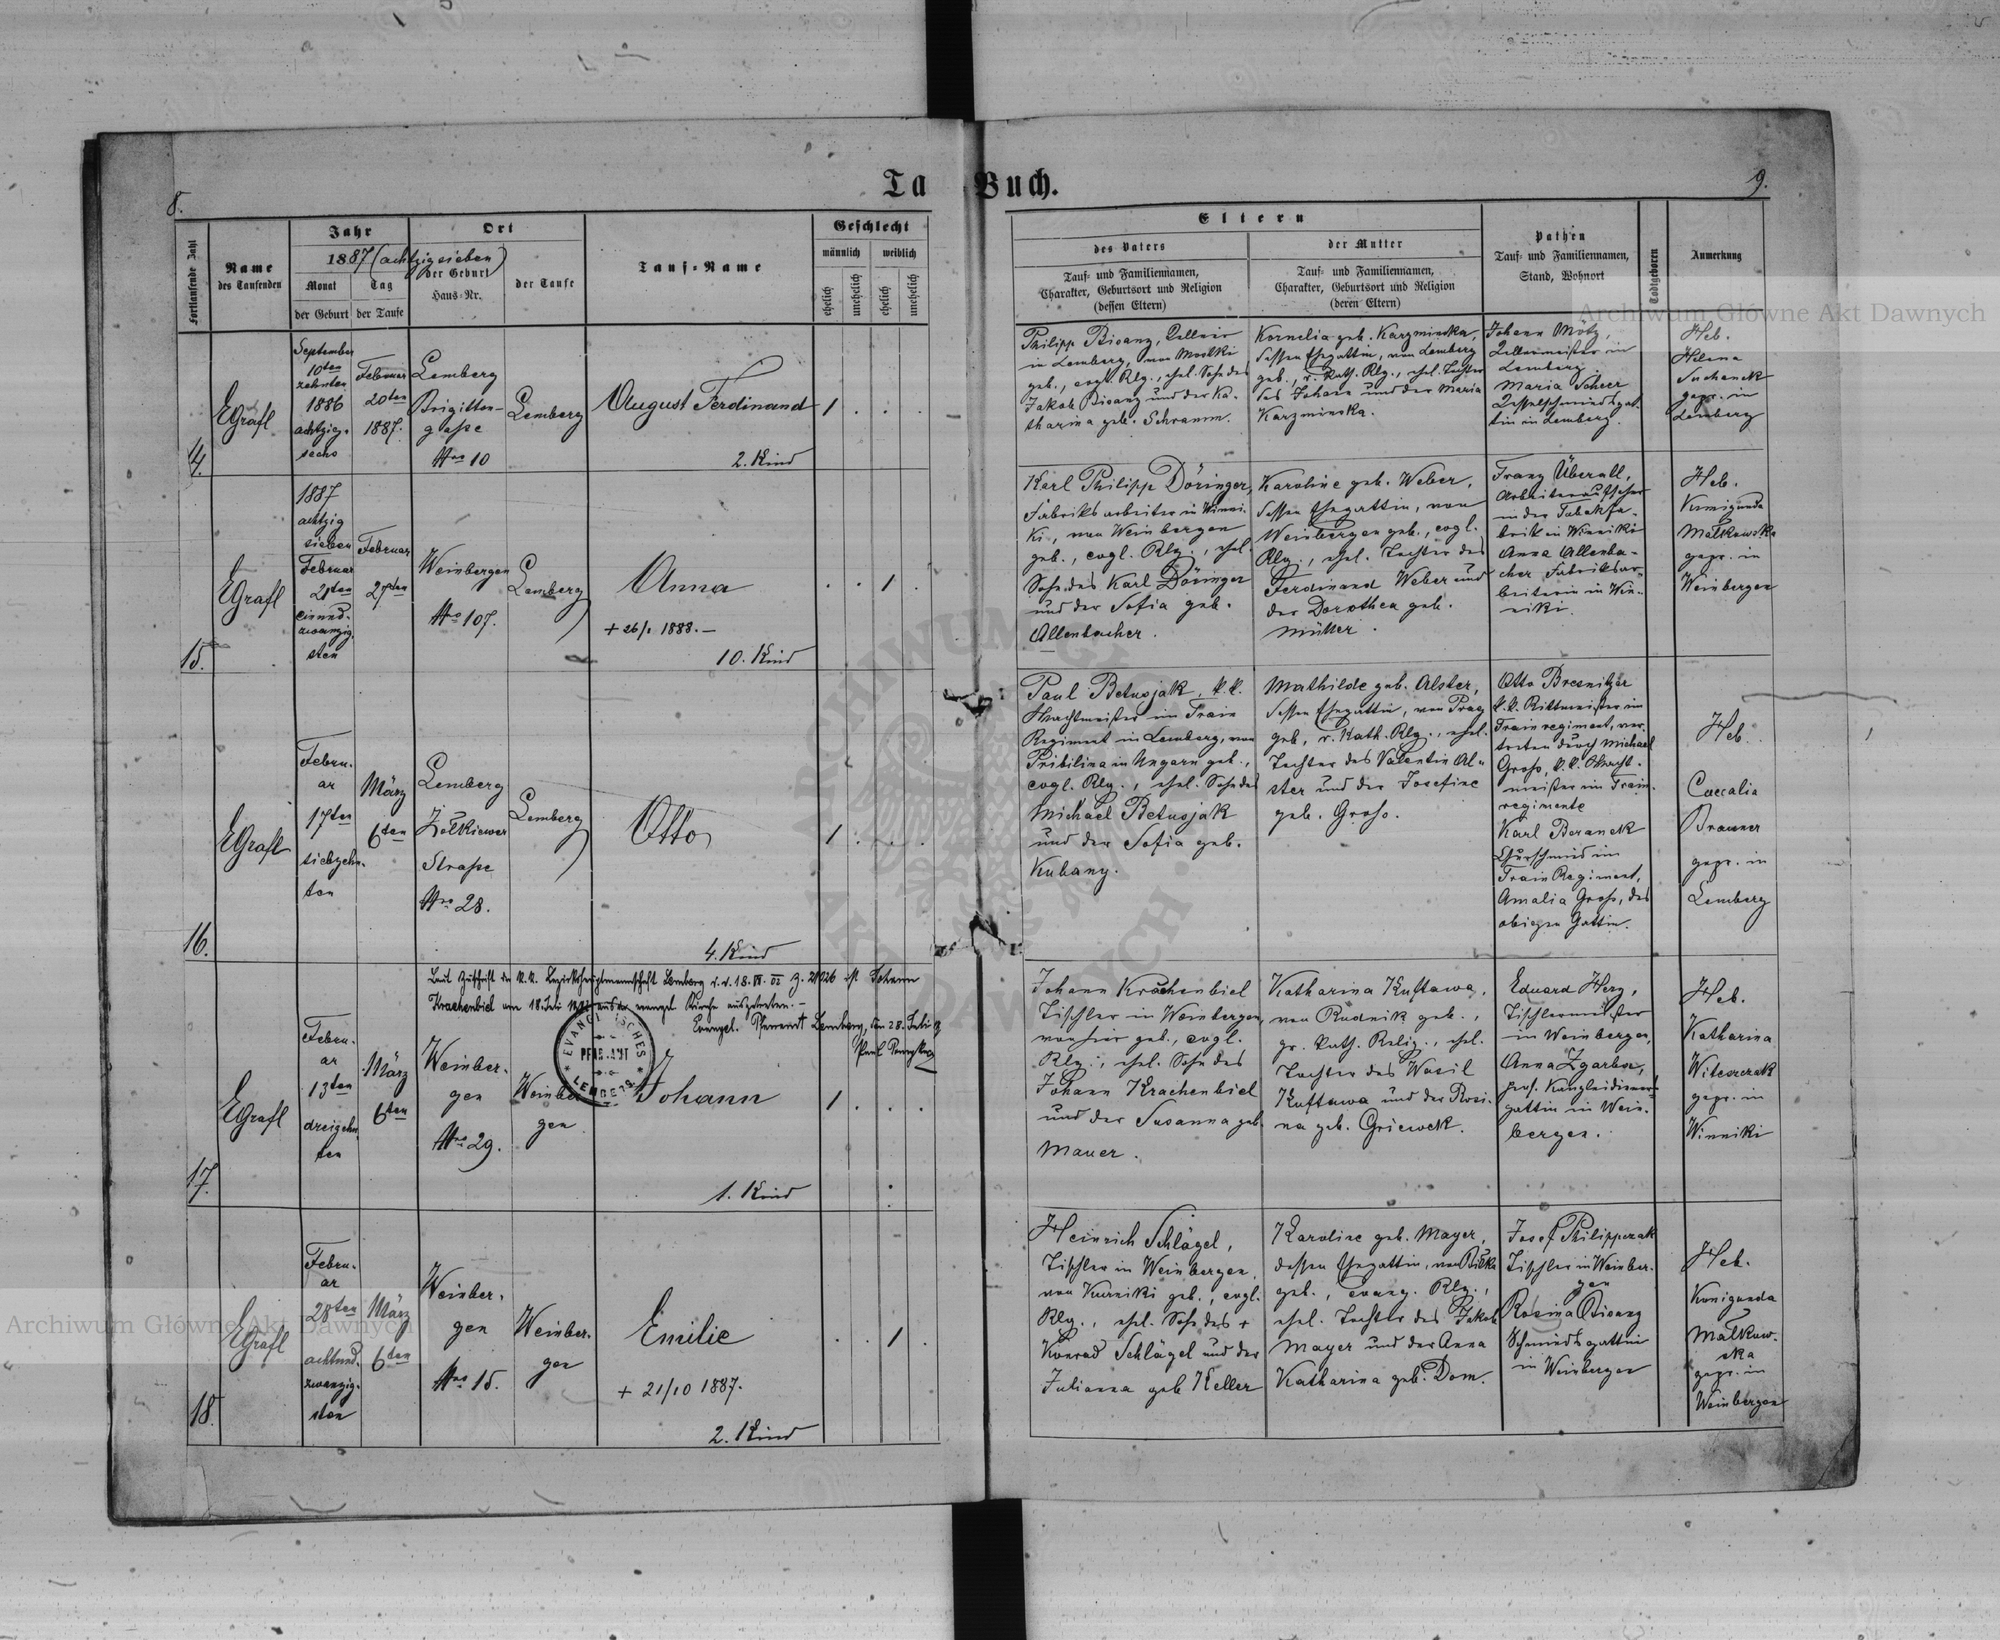 8.
Ta
Buch.
9.
Fortlaufende Zahl
Name
des Taufenden
Jahr
1887 (achtzigsieben)
Monat
Tag
der Geburt
der Taufe
Ort
der Geburt
Haus-Nr.
der Taufe
Tauf-Name
Geschlecht
männlich
weiblich
ehelich
unehelich
ehelich
unehelich
Eltern
des Vaters
Tauf- und Familiennamen,
Charakter, Geburtsort und Religion
(dessen Eltern)
der Mutter
Tauf- und Familiennamen,
Charakter, Geburtsort und Religion
(deren Eltern)
Pathen
Tauf- und Familiennamen,
Stand, Wohnort
Todtgeboren
Anmerkung
14.
EGrafl
September
10ten
zehnten
1886
achtzig-
sechs
Februar
20ten
1887.
Lemberg
Brigitten-
gasse
Nro 10
Lemberg
August Ferdinand
2. Kind
1
Philipp Bisanz,
in Lemberg, von
geb., evgl. Rlg., ehel. Sohn des
Jakob Bisanz und der Ka-
tharina geb. Schramm.
Kornelia geb. Karzminska,
dessen Ehegattin, von Lemberg
geb., r. kath. Rlg., ehel. Tochter
des Johann und der Maria
Karzminska.
Johann Mötz,
in
Lemberg
Maria Scheer
Kesselschmiedsgat-
tin in Lemberg.
Heb.
Helena
Suchanek
gepr. in
Lemberg
15.
EGrafl
1887
achtzig
sieben
Februar
21ten
einund-
zwanzig-
sten
Februar
27ten
Weinbergen
Nro 107.
Lemberg
Anna
+ 26/1 1888. –
10. Kind
1
Karl Philipp Döringer,
Fabriksarbeiter in Winni-
ki, von Weinbergen
geb., evgl. Rlg., ehel.
Sohn des Karl Döringer
und der Sofia geb.
Allenbacher.
Karoline geb. Weber,
dessen Ehegattin, von
Weinbergen geb., evgl.
Rlg., ehel. Tochter des
Ferdinand Weber und
der Dorothea geb.
Müller.
Franz Überall,
Arbeiteraufseher
in der Tabakfa-
brik in Winniki
Anna Allenba-
cher Fabriksar-
beiterin in Win-
niki.
Heb.
Kunigunda
Malkowska
gepr. in
Weinbergen
16.
EGrafl
Febru-
ar
17ten
siebzehn-
ten
März
6ten
Lemberg
Żolkiewer
Strasse
Nro 28.
Lemberg
Otto
4. Kind
1
Paul Betusjak, k. k.
Wachtmeister im Train
Regiment in Lemberg, von
Pribilina in Ungarn geb.,
evgl. Rlg., ehel. Sohn des
Michael Betusjak
und der Sofia geb.
Kubany.
Mathilde geb. Alster,
dessen Ehegattin, von Prag
geb., r. kath. Rlg., ehel.
Tochter des Valentin Al-
ster und der Josefine
geb. Gross.
Otto Bresnitzer
k. k. Rittmeister im
Trainregiment, ver-
treten durch Michael
Gross, k. k. Wacht-
meister im Train-
regimente
Karl Beranek
Curschmied im
Train Regiment,
Amalia Gross, des
obigen Gattin.
Heb.
Caecalia
Brauner
gepr. in
Lemberg
17.
EGrafl
Febru-
ar
13ten
dreizehn-
ten
März
6ten
Weinber-
gen
Nro 29.
Weinber
gen
Laut Zuschrift der k. k. Bezirkshauptmannschaft Lemberg v. 18. Z. ist Johann
Krachenbiel am 18. Juli aus der evangel. Kirche ausgetreten. –
Evangel. Pfarramt Lemberg, den 28. Juli
EVANGELISCHES
PFARRAMT
LEMBERG
Johann
1. Kind
1
Johann Krachenbiel
Tischler in Weinbergen,
von hier geb., evgl.
Rlg., ehel. Sohn des
Johann Krachenbiel
und der Susanna geb.
Mauer.
Katharina Kuftawa,
von Rudnik geb.,
gr. kath. Relig., ehel.
Tochter des Wasil
Kuftawa und der Rosi-
na geb.
Eduard Herz,
Tischlermeister
in Weinbergen,
Anna Zgarba,
Kanzleidieners-
gattin in Wein-
bergen.
Heb.
Katharina
gepr. in
Winniki
18.
EGrafl
Febru-
ar
28ten
achtund-
zwanzig-
sten
März
6ten
Weinber-
gen
Nro 15.
Weinber-
gen
Emilie
+ 21/10 1887.
2. Kind
1
Heinrich Schlägel,
Tischler in Weinbergen,
von geb., evgl.
Rlg., ehel. Sohn des +
Konrad Schlägel und der
Julianna geb Keller
Karoline geb. Mayer,
dessen Ehegattin, von
geb., evang. Rlg.,
ehel. Tochter des Jakob
Mayer und der Anna
Katharina geb. Dom.
Josef Philippczak
Tischler in Weinber-
gen
Rosina Bisanz
Schmiedsgattin
in Weinbergen
Heb.
Konigunda
Malkow-
ska
gepr. in
Weinbergen
Archiwum Główne Akt Dawnych
Archiwum Główne Akt Dawnych